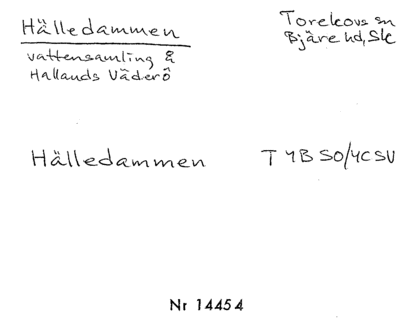 Hälledammen
Torekovs sn
Bjäre hd, Sk
vattensamling å
Hallands Väderö
Hälledammen
T 4B SO/4C SV
Nr 14454